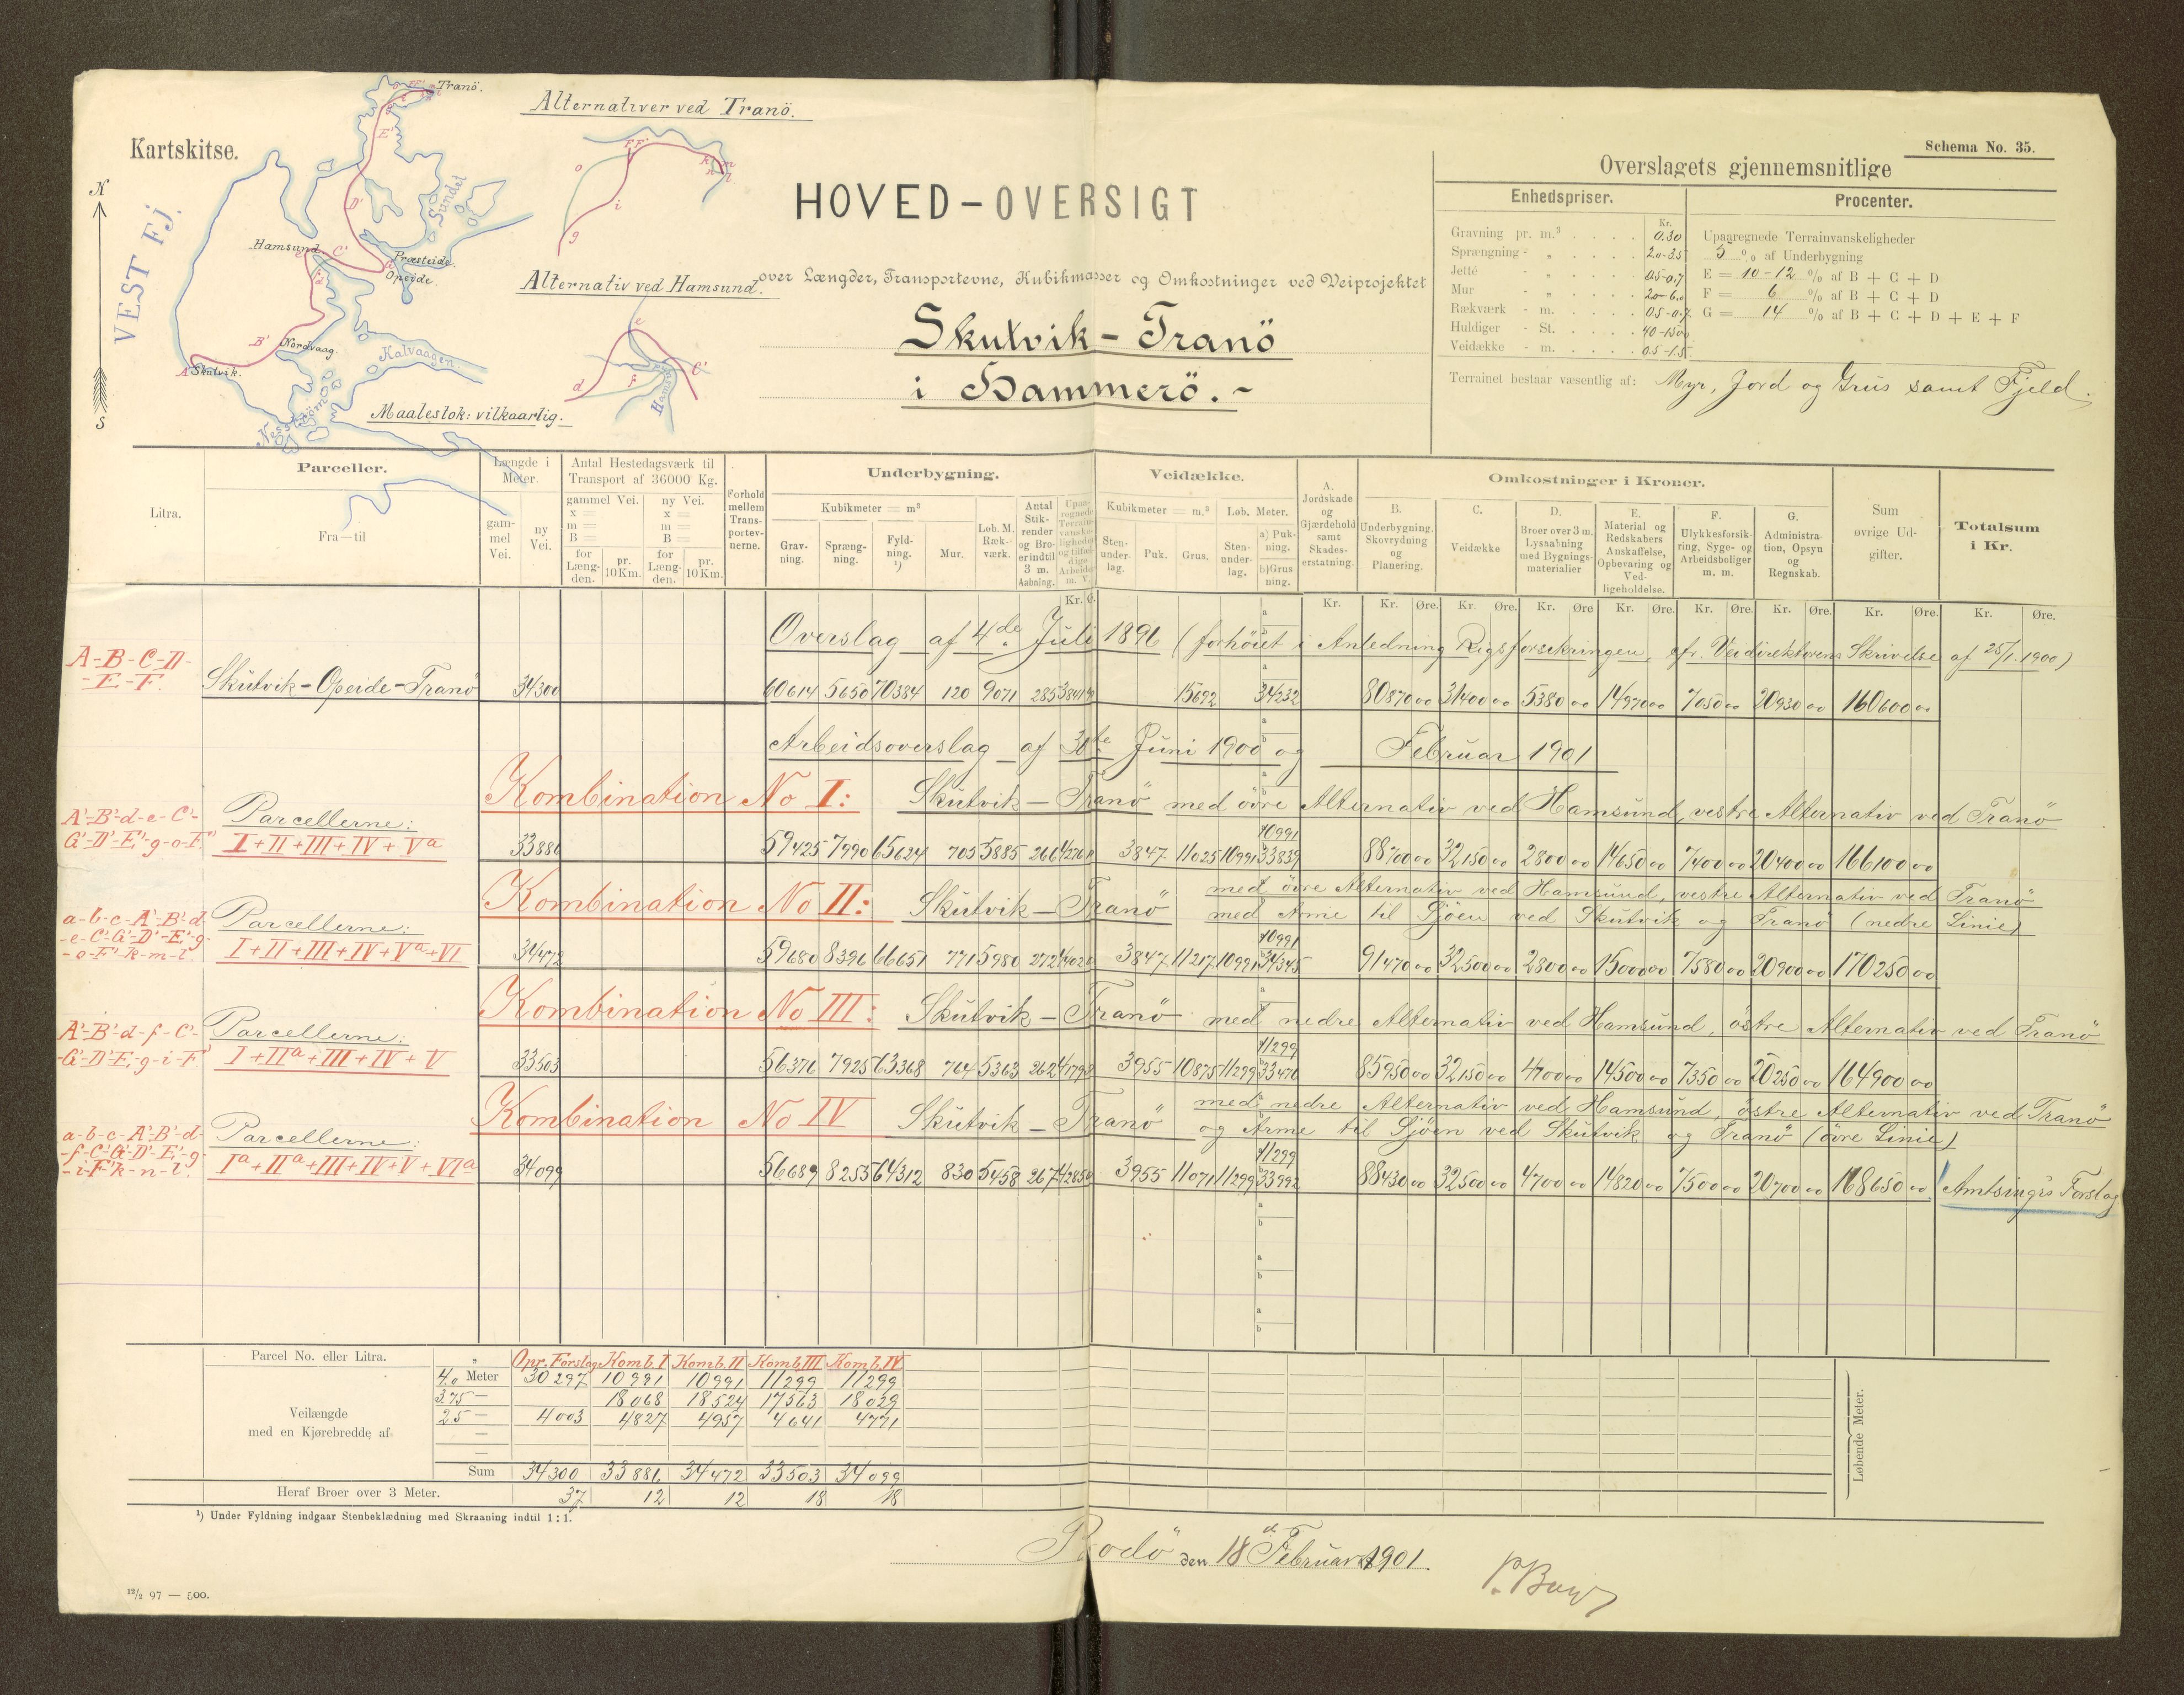 Kartskitse.
N
S
VEST Fj.
Tranö.
E'
D'
Sundet
Hamsund
C'
Præsteide.
Opeide
B'
Nordvaag.
Kalvaagen
A'
Skutvik.
Nesström
Maalestok: vilkaarlig.
Alternativer ved Tranö.
o
F'
i
g
Alternativ ved Hamsund.
e
d
f
C'
HOVED-OVERSIGT
over Længder, Transportevne, Kubikmasser og Omkostninger ved Veiprojektet
Skutvik - Tranö
i Hammerö. -
Schema No. 35.
Overslagets gjennemsnitlige
Enhedspriser.
Kr.
Gravning pr. m.³ 0.30
Sprængning - „ 2.0-3.5
Jetté - „ 0.5-0.7
Mur - „ 2.0-6.0
Rækværk - m. 0.5-0.7
Huldiger - St. 40-150
Veidække - m. 0.5-1.5
Procenter.
Upaaregnede Terrainvanskeligheder
5 % af Underbygning
E = 10-12 % af B + C + D
F = 6 % af B + C + D
G = 14 % af B + C + D + E + F
Terrainet bestaar væsentlig af: Myr, Jord og Grus samt Fjeld.
Litra.
Parceller.
Fra—til
Længde i Meter.
gammel Vei.
ny Vei.
Antal Hestedagsværk til Transport af 36000 Kg.
gammel Vei.
x =
m =
B =
for Længden.
pr. 10Km.
ny Vei.
x =
m =
B =
for Længden.
pr. 10Km.
Forhold mellem Transportevnerne.
Underbygning.
Kubikmeter = m³
Gravning.
Sprængning.
Fyldning. ¹)
Mur.
Løb. M. Rækværk.
Antal Stikrender og Broer indtil 3 m. Aabning.
Upaaregnede Terrainvanskeligheder og tilfældige Arbeider m. V.
Kr. Ø.
Veidække.
Kubikmeter = m.³
Stenunderlag.
Puk.
Grus.
Løb. Meter.
Stenunderlag.
a) Pukning.
b) Grusning.
A.
Jordskade og Gjærdehold samt Skadeserstatning.
Kr.
Omkostninger i Kroner.
B.
Underbygning. Skovrydning og Planering.
C.
Veidække
D.
Broer over 3 m. Lyssabning med Bygningsmaterialier
E.
Material og Redskabers Anskaffelse, Opbevaring og Vedligeholdelse.
F.
Ulykkesforsikring, Syge- og Arbeidsboliger m. m.
G.
Administration, Opsyn og Regnskab.
Sum øvrige Udgifter.
Totalsum i Kr.
Kr. Øre. Kr. Øre. Kr. Øre Kr. Øre. Kr. Øre. Kr. Øre. Kr. Øre. Kr. Øre.
Overslag af 4de Juli 1896 (forhöiet i Anledning Rigsforsikringen, cfr. Veidirektörens Skrivelse af 25/1.1900)
A-B-C-D-
-E-F.
Skutvik-Opeide-Tranö 34300 60614 5650 70384 120 9071 285 15692 34232 80870 00 31400 00 5380 00 14970 00 7050 00 20930 00 160600 00
Arbeidsoverslag af 30te Juni 1900 og Februar 1901
Kombination No I: Skutvik - Tranö med övre Alternativ ved Hamsund, vestre Alternativ ved Tranö
A'-B'-d-e-C'-
G'-D'-E'-g-o-F'
Parcellerne:
I+II+III+IV+Va 33886 59425 7990 65624 705 5885 266 3847 11025 10991 10991 33839 88700 00 32150 00 2800 00 14650 00 7400 00 20400 00 166100 00
Kombination No II: Skutvik - Tranö med övre Alternativ ved Hamsund, vestre Alternativ ved Tranö
med Arme til Sjöen ved Skutvik og Tranö (nedre Linie)
a-b-c-A'-B'-d-
-e-C'-G'-D'-E'-g-
-o-F'-k-m-l.
Parcellerne:
I+II+III+IV+Va+VI 34472 59680 8396 66651 771 5980 272 3847 11217 10991 10991 34345 91470 00 32500 00 2800 00 15000 00 7580 00 20900 00 170250 00
Kombination No III: Skutvik - Tranö med nedre Alternativ ved Hamsund, östre Alternativ ved Tranö
A'-B'-d-f-C'-
-G'-D'-E'-g-i-F'
Parcellerne:
I+IIa+III+IV+V 33503 56376 7925 63368 764 5363 262 3955 10875 11299 11299 33470 85950 00 32150 00 4700 00 14500 00 7350 00 20250 00 164900 00
Kombination No IV Skutvik - Tranö med nedre Alternativ ved Hamsund, östre Alternativ ved Tranö
og Arme til Sjöen ved Skutvik og Tranö (övre Linie)
a-b-c-A'-B'-d-
-f-C'-G'-D'-E'-g-
-i-F'-k-n-l.
Parcellerne:
Ia+IIa+III+IV+V+VIa 34099 56689 8255 64312 830 5458 267 3955 11071 11299 11299 33992 88430 00 32500 00 4700 00 14820 00 7500 00 20700 00 168650 00 Amtsing's Forslag
Parcel No. eller Litra. „ Opr. Forslag Komb. I Komb. II Komb. III Komb. IV
Veilængde med en Kjørebredde af
4.0 Meter 30297 10991 10991 11299 11299
3.75 — 18068 18524 17563 18029
2.5 — 4003 4827 4957 4641 4771
Sum 34300 33886 34472 33503 34099
Heraf Broer over 3 Meter. 37 12 12 18 18
Løbende Meter.
¹) Under Fyldning indgaar Stenbeklædning med Skraaning indtil 1 : 1.
Bodö den 18de Februar 1901.
12/2 97 — 500.